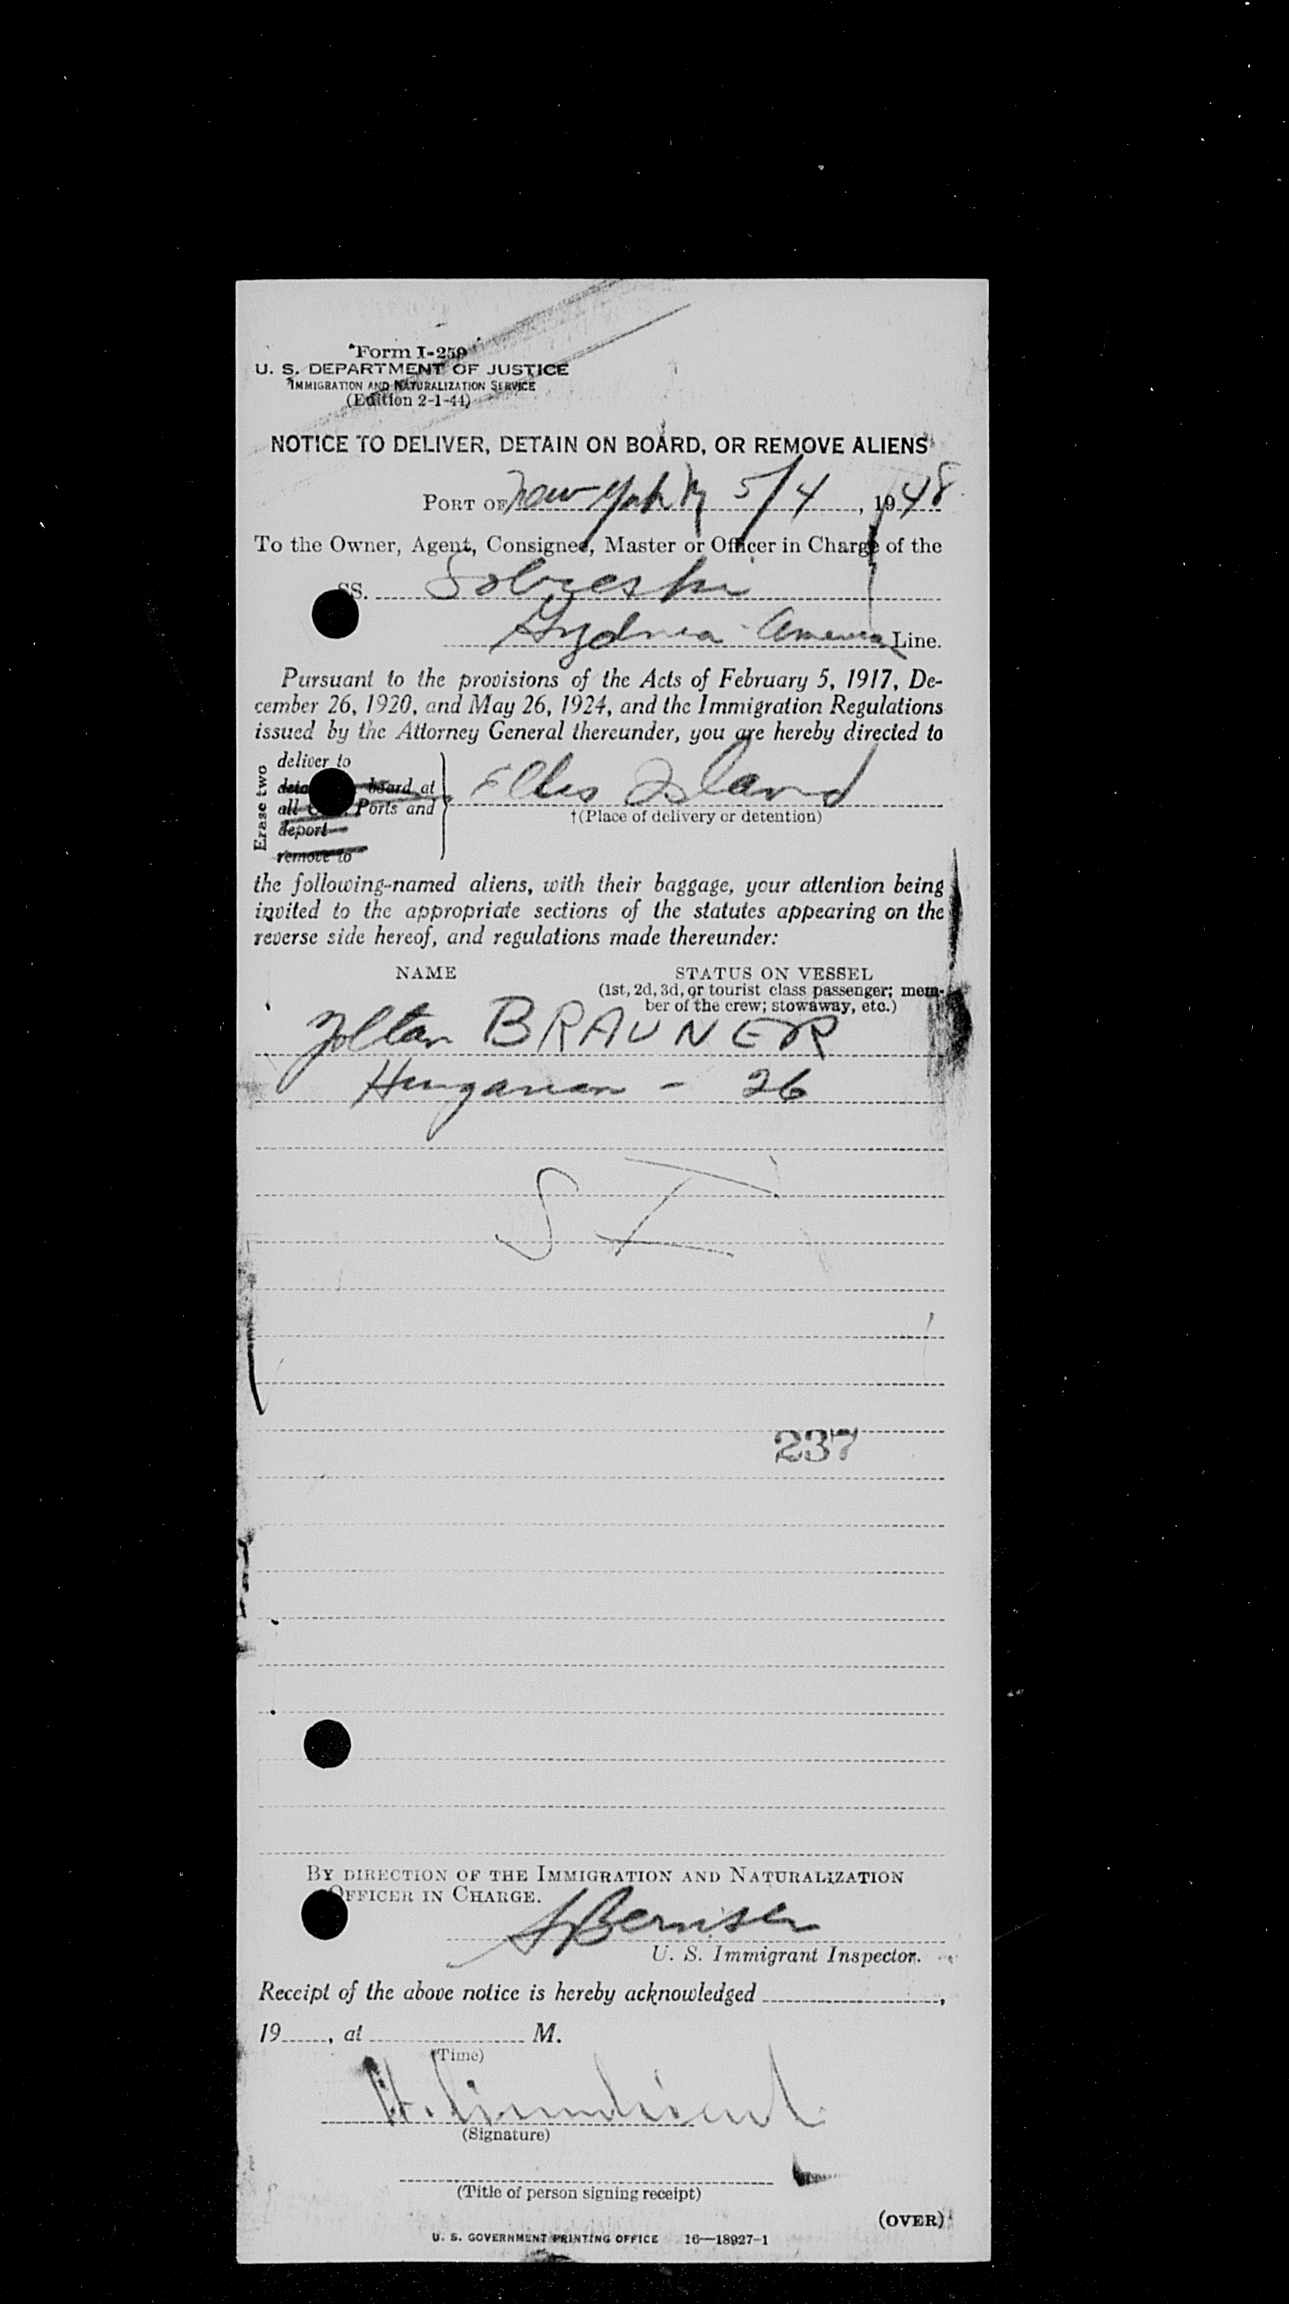 Form I-259
U. S. DEPARTMENT OF JUSTICE
IMMIGRATION AND NATURALIZATION SERVICE
(Edition 2-1-44)
NOTICE TO DELIVER, DETAIN ON BOARD, OR REMOVE ALIENS
PORT OF New York NY 5/4, 1948
To the Owner, Agent, Consignee, Master or Officer in Charge of the
SS. Sobieski
Gydnia - America Line.
Pursuant to the provisions of the Acts of February 5, 1917, De-
cember 26, 1920, and May 26, 1924, and the Immigration Regulations
issued by the Attorney General thereunder, you are hereby directed to
Erase two
deliver to
board at
all Ports and
deport
remove to
Ellis Island
†(Place of delivery or detention)
the following-named aliens, with their baggage, your attention being
invited to the appropriate sections of the statutes appearing on the
reverse side hereof, and regulations made thereunder:
NAME STATUS ON VESSEL
(1st, 2d, 3d, or tourist class passenger; mem-
ber of the crew; stowaway, etc.)
Zoltan BRAUNER
Hungarian - 26
S I
237
BY DIRECTION OF THE IMMIGRATION AND NATURALIZATION
OFFICER IN CHARGE.
U. S. Immigrant Inspector.
Receipt of the above notice is hereby acknowledged ,
19 , at M.
(Time)
(Signature)
(Title of person signing receipt)
(OVER)
U. S. GOVERNMENT PRINTING OFFICE 16—18927-1